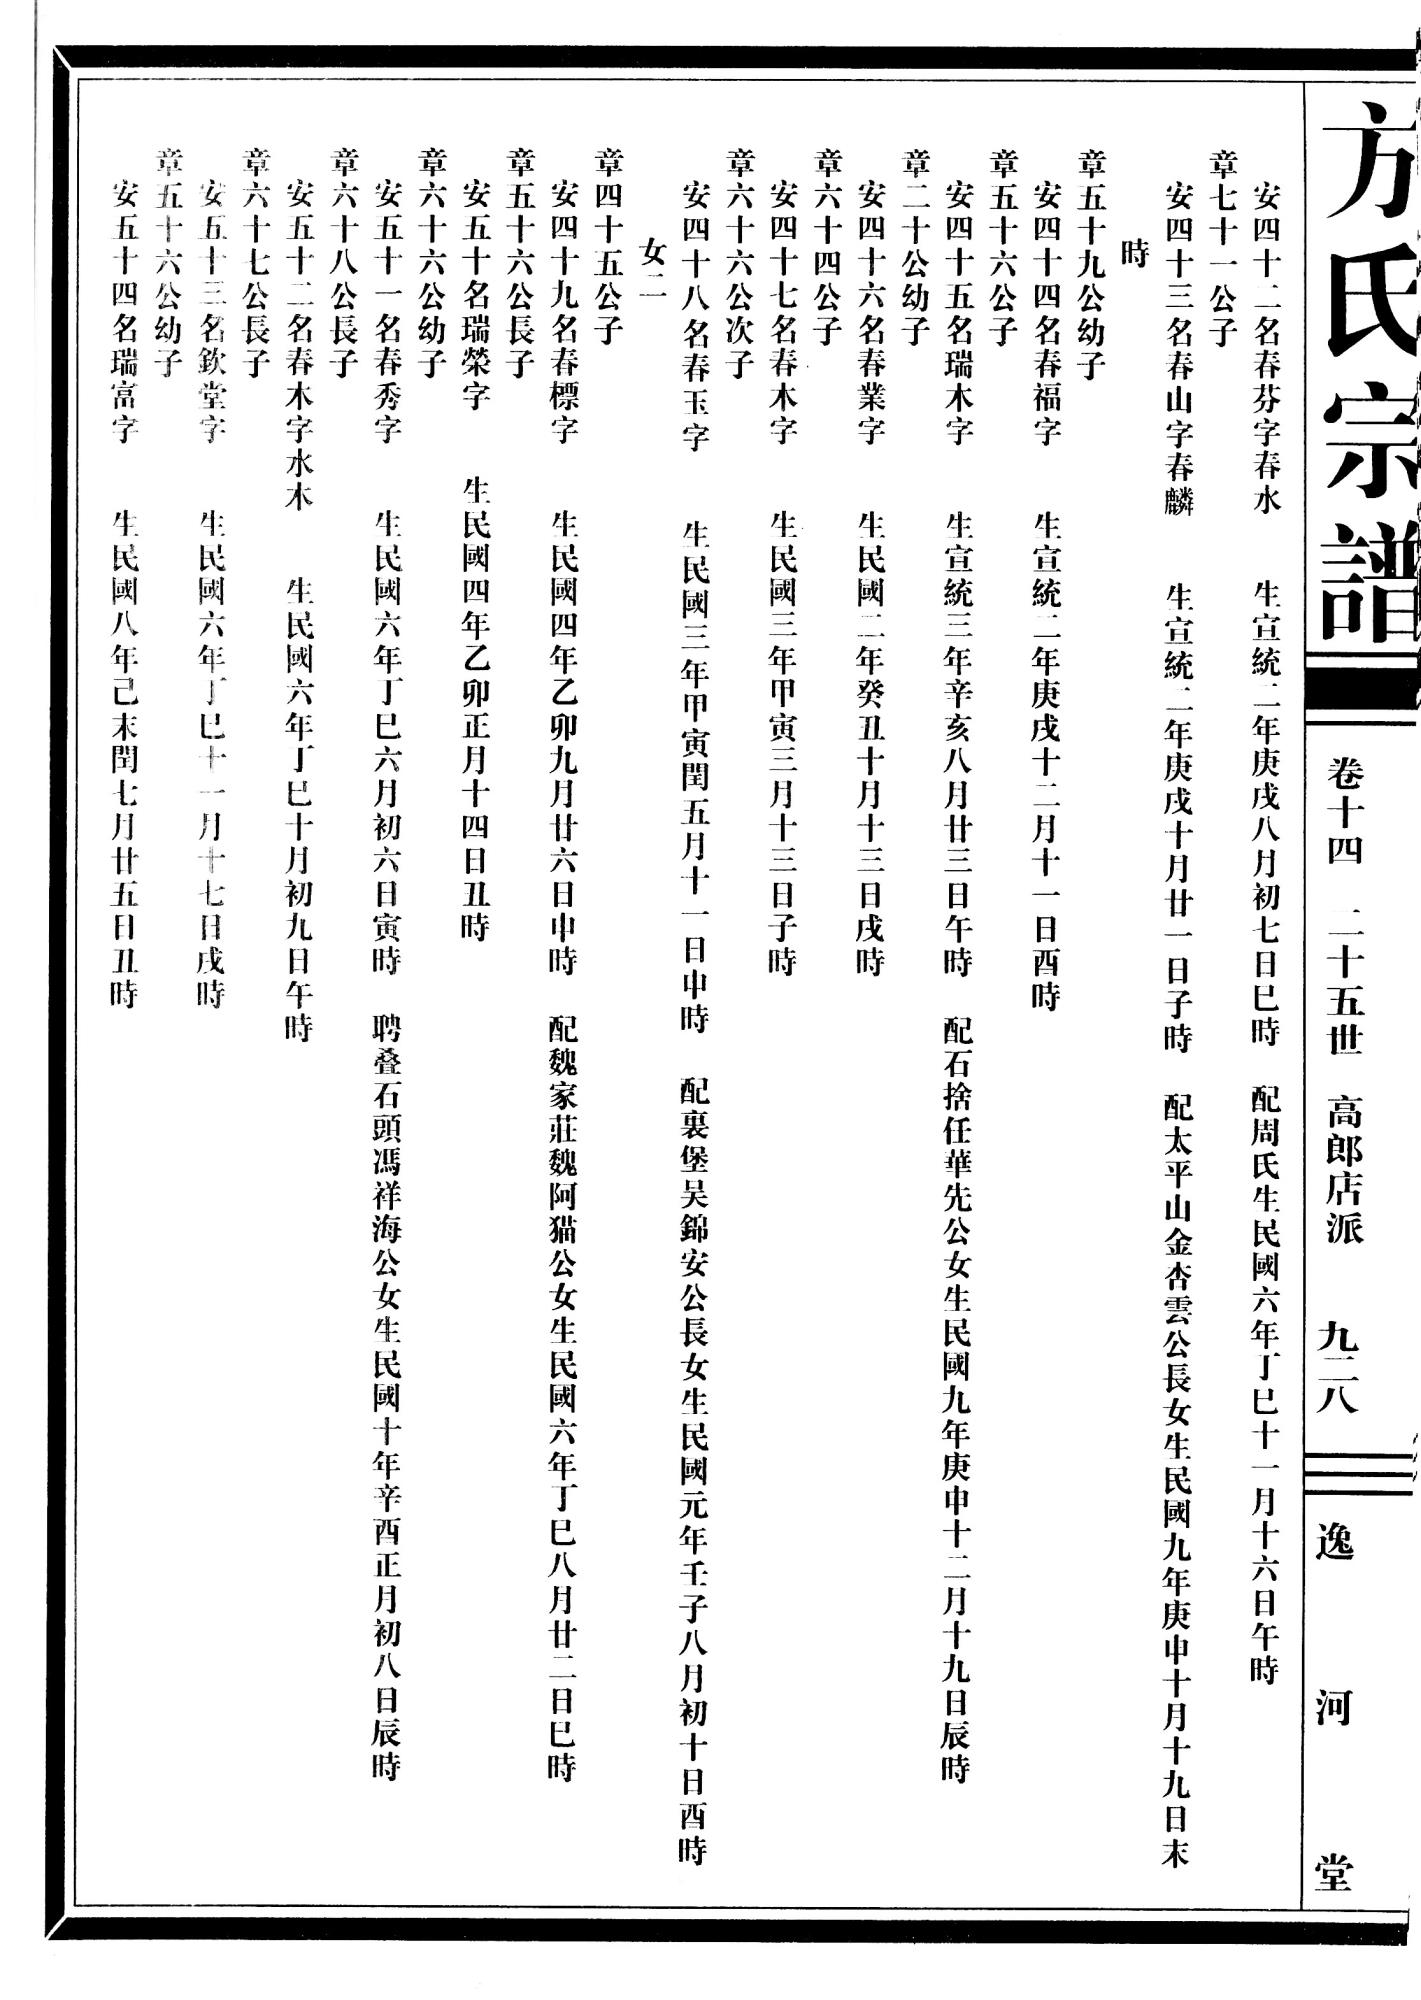 方氏宗譜
卷十四 二十五世 高郎店派 九二八
逸河堂
安四十二名春芬字春水 生宣統二年庚戌八月初七日巳時 配周氏生民國六年丁巳十一月十六日午時
章七十一公子
安四十三名春山字春麟 生宣統二年庚戌十月廿一日子時 配太平山金杏雲公長女生民國九年庚申十月十九日末
時
章五十九公幼子
安四十四名春福字 生宣統二年庚戌十二月十一日酉時
章五十六公子
安四十五名瑞木字 生宣統三年辛亥八月廿三日午時 配石捨任華先公女生民國九年庚申十二月十九日辰時
章二十公幼子
安四十六名春業字 生民國二年癸丑十月十三日戌時
章六十四公子
安四十七名春木字 生民國三年甲寅三月十三日子時
章六十六公次子
安四十八名春玉字 生民國三年甲寅閏五月十一日申時 配裏堡吴錦安公長女生民國元年壬子八月初十日酉時
女二
章四十五公子
安四十九名春標字 生民國四年乙卯九月廿六日申時 配魏家莊魏阿猫公女生民國六年丁巳八月廿二日巳時
章五十六公長子
安五十名瑞榮字 生民國四年乙卯正月十四日丑時
章六十六公幼子
安五十一名春秀字 生民國六年丁巳六月初六日寅時 聘叠石頭馮祥海公女生民國十年辛酉正月初八日辰時
章六十八公長子
安五十二名春木字水木 生民國六年丁巳十月初九日午時
章六十七公長子
安五十三名欽堂字 生民國六年丁巳十一月十七日戌時
章五十六公幼子
安五十四名瑞富字 生民國八年己末閏七月廿五日丑時